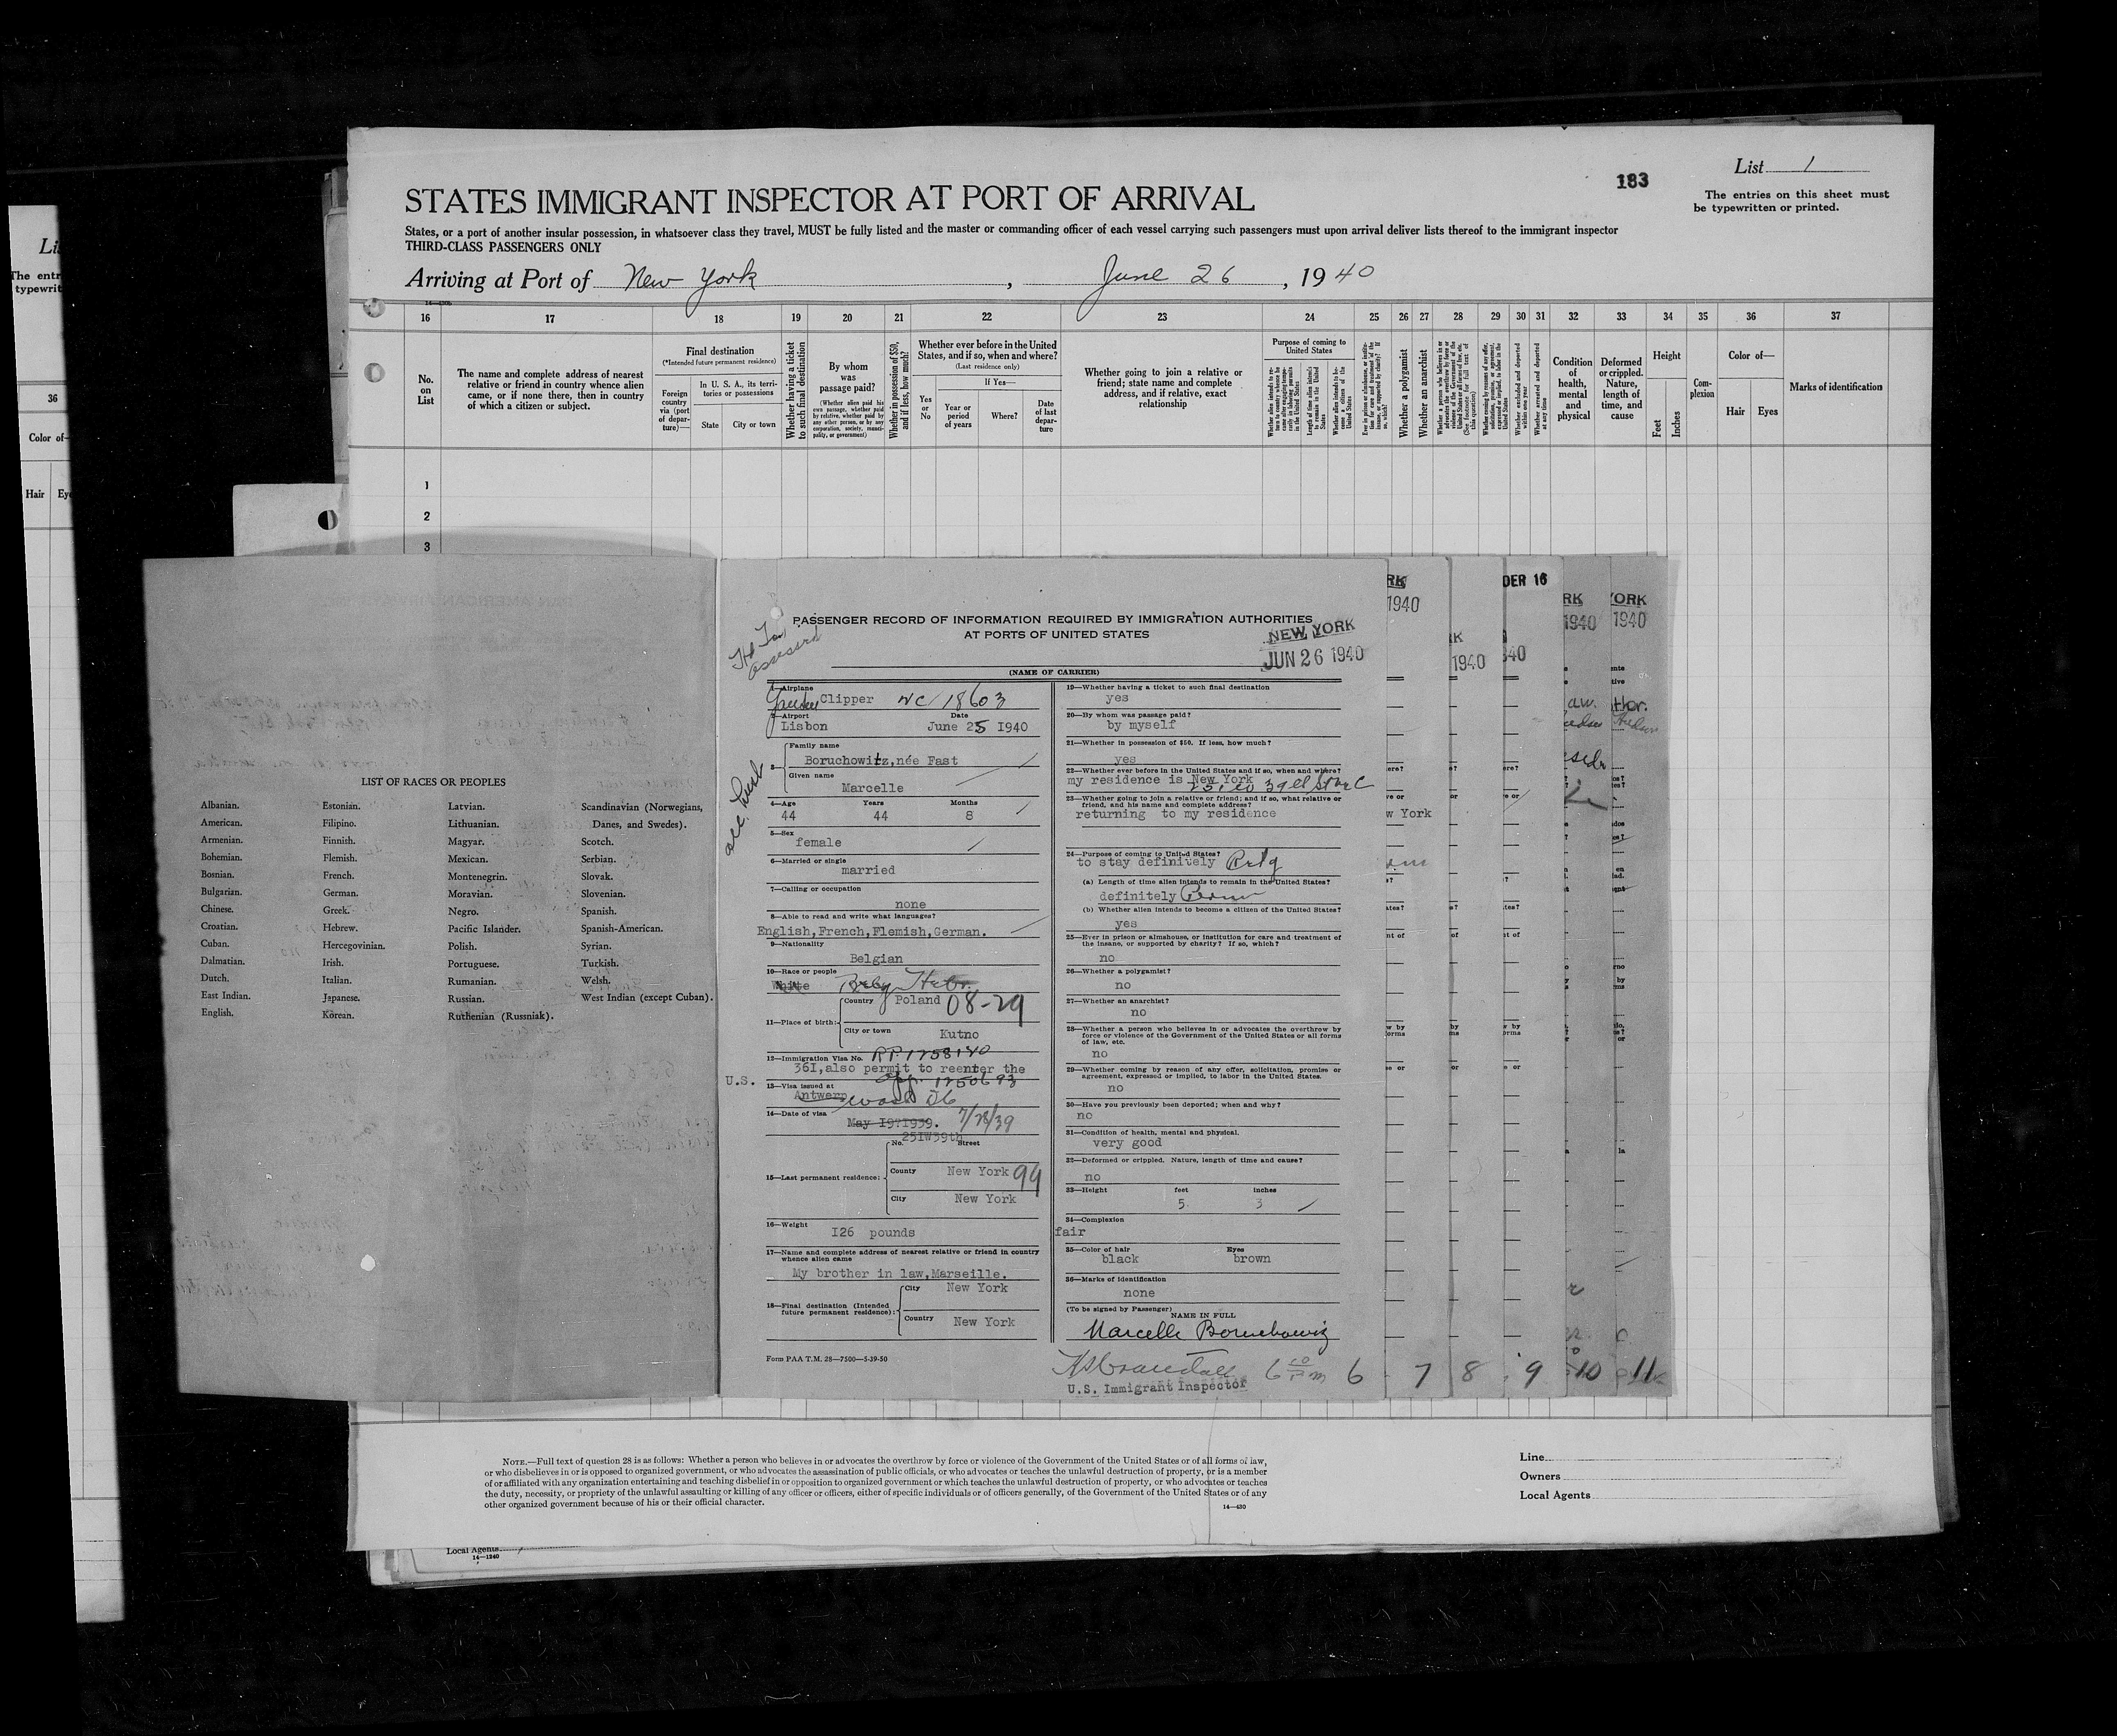 List 1
183
The entries on this sheet must
be typewritten or printed.
STATES IMMIGRANT INSPECTOR AT PORT OF ARRIVAL
States, or a port of another insular possession, in whatsoever class they travel, MUST be fully listed and the master or commanding officer of each vessel carrying such passengers must upon arrival deliver lists thereof to the immigrant inspector
THIRD-CLASS PASSENGERS ONLY
Arriving at Port of New York, June 26, 1940
16 17 18 19 20 21 22 23 24 25 26 27 28 29 30 31 32 33 34 35 36 37
No. on List
The name and complete address of nearest
relative or friend in country whence alien
came, or if none there, then in country
of which a citizen or subject.
Final destination
(*Intended future permanent residence)
Foreign country via (port of departure)—
In U. S. A., its territories or possessions
State
City or town
Whether having a ticket to such final destination
By whom was passage paid?
(Whether alien paid his own passage, whether paid by relative, whether paid by any other person, or by any corporation, society, municipality, or government)
Whether in possession of $50, and if less, how much?
Whether ever before in the United
States, and if so, when and where?
(Last residence only)
Yes or No
If Yes—
Year or period of years
Where?
Date of last departure
Whether going to join a relative or
friend; state name and complete
address, and if relative, exact
relationship
Purpose of coming to
United States
Whether a polygamist
Whether an anarchist
Condition of health, mental and physical
Deformed or crippled. Nature, length of time, and cause
Height
Feet
Inches
Complexion
Color of—
Hair
Eyes
Marks of identification
1
2
3
36
Color of—
Hair
LIST OF RACES OR PEOPLES
Albanian.
American.
Armenian.
Bohemian.
Bosnian.
Bulgarian.
Chinese.
Croatian.
Cuban.
Dalmatian.
Dutch.
East Indian.
English.
Estonian.
Filipino.
Finnish.
Flemish.
French.
German.
Greek.
Hebrew.
Hercegovinian.
Irish.
Italian.
Japanese.
Korean.
Latvian.
Lithuanian.
Magyar.
Mexican.
Montenegrin.
Moravian.
Negro.
Pacific Islander.
Polish.
Portuguese.
Rumanian.
Russian.
Ruthenian (Russniak).
Scandinavian (Norwegians,
Danes, and Swedes).
Scotch.
Serbian.
Slovak.
Slovenian.
Spanish.
Spanish-American.
Syrian.
Turkish.
Welsh.
West Indian (except Cuban).
PASSENGER RECORD OF INFORMATION REQUIRED BY IMMIGRATION AUTHORITIES
AT PORTS OF UNITED STATES
Hd Tax
assessed
NEW YORK
JUN 26 1940
(NAME OF CARRIER)
1—Airplane
Clipper NC 18603
2—Airport Date
Lisbon June 25 1940
3— Family name
Boruchowitz,née Fast
Given name
Marcelle
4—Age Years Months
44 44 8
5—Sex
female
6—Married or single
married
7—Calling or occupation
none
8—Able to read and write what languages?
English,French,Flemish,German.
9—Nationality
Belgian
10—Race or people
White Belg Hebr.
11—Place of birth: Country Poland 08-29
City or town
Kutno
12—Immigration Visa No. RP 1258140
361,also permit to reenter the
U.S.
13—Visa issued at
Antwerp Wash DC
14—Date of visa
May 19?1939. 7/28/39
15—Last permanent residence: No. 251W39th Street
County New York 99
City New York
16—Weight
126 pounds
17—Name and complete address of nearest relative or friend in country
whence alien came
My brother in law,Marseille.
18—Final destination (Intended
future permanent residence):
City New York
Country New York
Form PAA T.M. 28—7500—5-39-50
19—Whether having a ticket to such final destination
yes
20—By whom was passage paid?
by myself
21—Whether in possession of $50. If less, how much?
yes
22—Whether ever before in the United States and if so, when and where?
my residence is New York
23—Whether going to join a relative or friend; and if so, what relative or
friend, and his name and complete address?
returning to my residence
24—Purpose of coming to United States?
to stay definitely
(a) Length of time alien intends to remain in the United States?
definitely Perm
(b) Whether alien intends to become a citizen of the United States?
yes
25—Ever in prison or almshouse, or institution for care and treatment of
the insane, or supported by charity? If so, which?
no
26—Whether a polygamist?
no
27—Whether an anarchist?
no
28—Whether a person who believes in or advocates the overthrow by
force or violence of the Government of the United States or all forms
of law, etc.
no
29—Whether coming by reason of any offer, solicitation, promise or
agreement, expressed or implied, to labor in the United States.
no
30—Have you previously been deported; when and why?
no
31—Condition of health, mental and physical.
very good
32—Deformed or crippled. Nature, length of time and cause?
no
33—Height feet inches
5 3
34—Complexion
fair
35—Color of hair Eyes
black brown
36—Marks of identification
none
(To be signed by Passenger)
NAME IN FULL
Marcelle Boruchowiz
U.S. Immigrant Inspector
6 7 8 9 10 11
NOTE.—Full text of question 28 is as follows: Whether a person who believes in or advocates the overthrow by force or violence of the Government of the United States or of all forms of law,
or who disbelieves in or is opposed to organized government, or who advocates the assassination of public officials, or who advocates or teaches the unlawful destruction of property, or is a member
of or affiliated with any organization entertaining and teaching disbelief in or opposition to organized government or which teaches the unlawful destruction of property, or who advocates or teaches
the duty, necessity, or propriety of the unlawful assaulting or killing of any officer or officers, either of specific individuals or of officers generally, of the Government of the United States or of any
other organized government because of his or their official character.
14—430
Line
Owners
Local Agents
Local Agents
14—1240